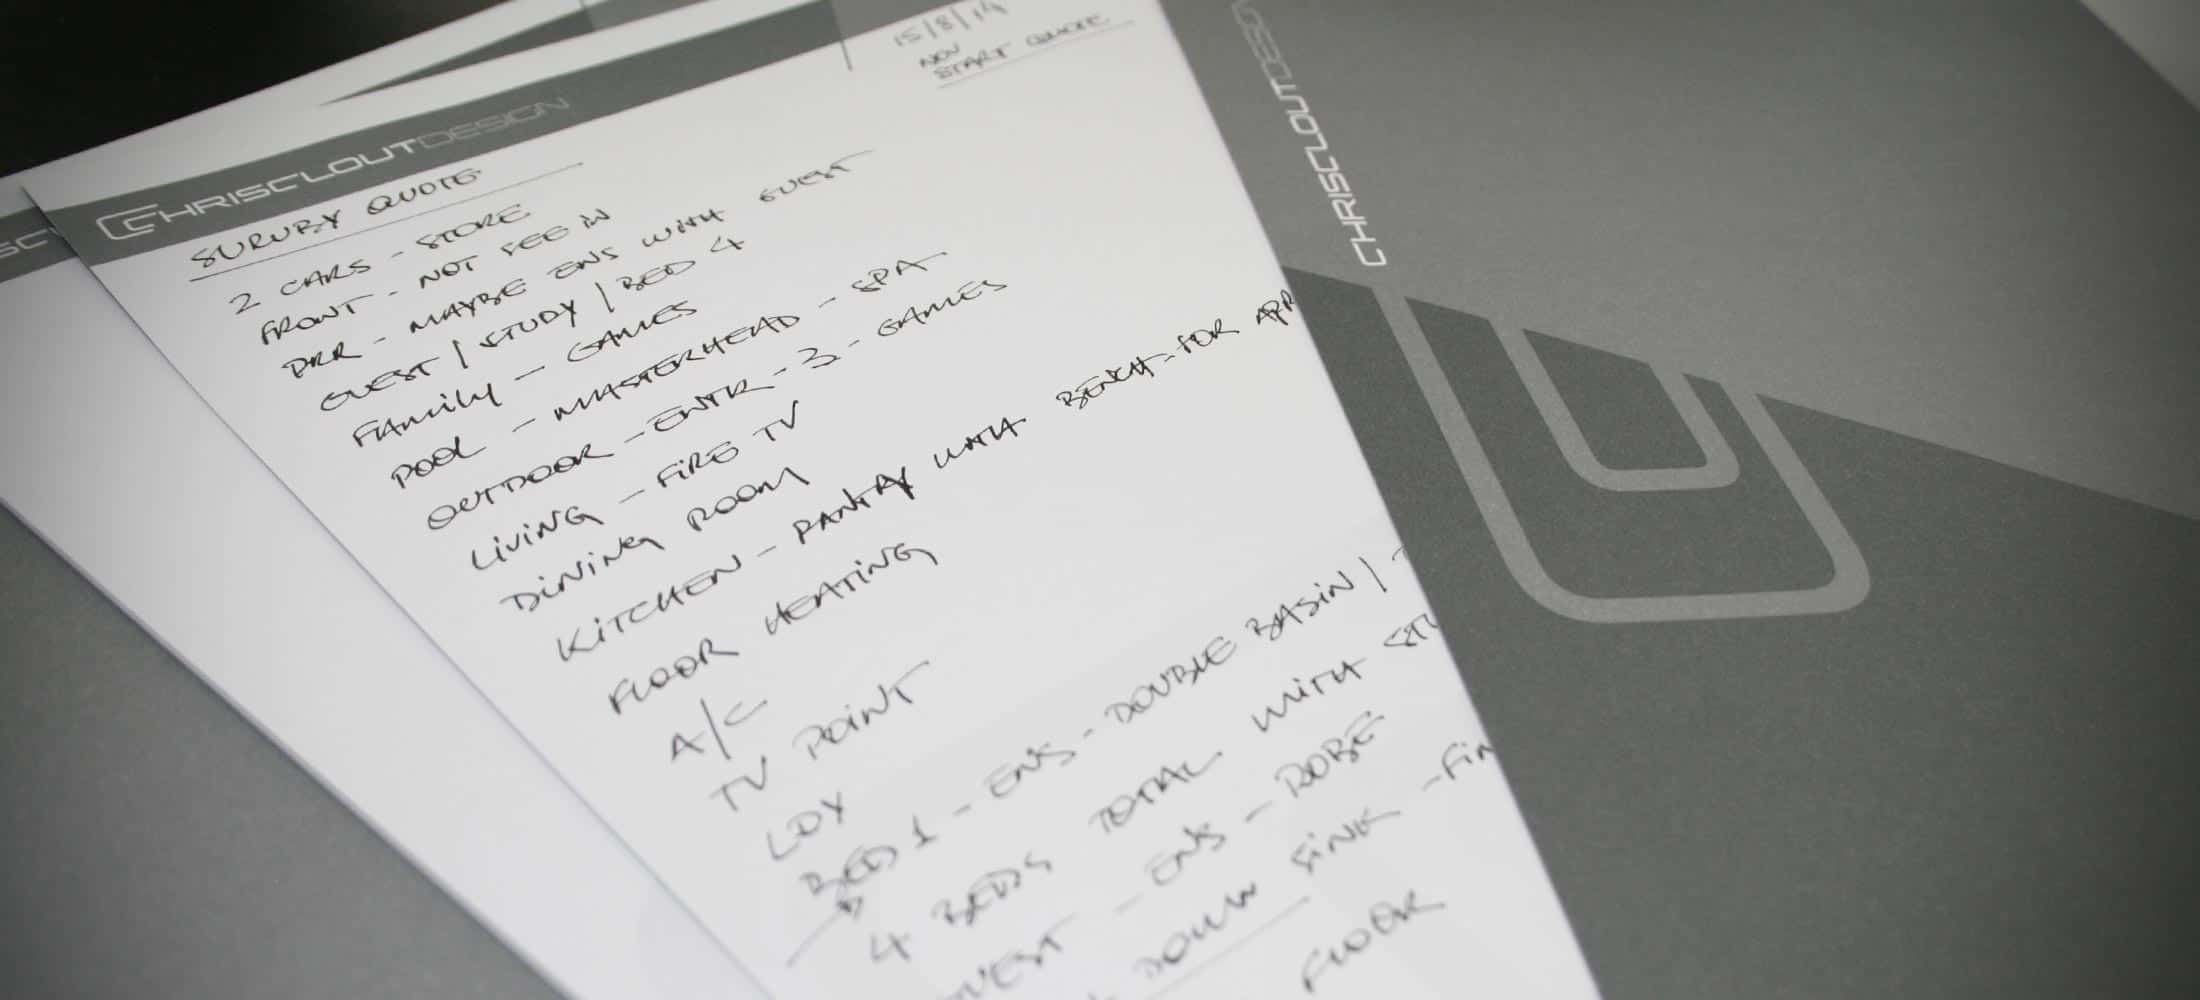 15/8/14
NOV
START QUOTE
CHRISCLOUTDESIGN
SURUBY QUOTE
2 CARS - STORE
FRONT - NOT SEE IN
PRR - MAYBE ENS WITH GUEST
GUEST / STUDY / BED 4
FAMILY - GAMES
POOL - MASTERHEAD - SPA
OUTDOOR - ENTR - 3 - GAMES
LIVING - FIRE TV
DINING ROOM
KITCHEN - PANTRY WITH BENCH - FOR APP
FLOOR HEATING
A/C
TV POINT
LDY
BED 1 - ENS - DOUBLE BASIN /
4 BEDS TOTAL WITH STU
GUEST - ENS - ROBE
DOWN SINK - FIN
FLOOR
CHRISCLOUTDESIG